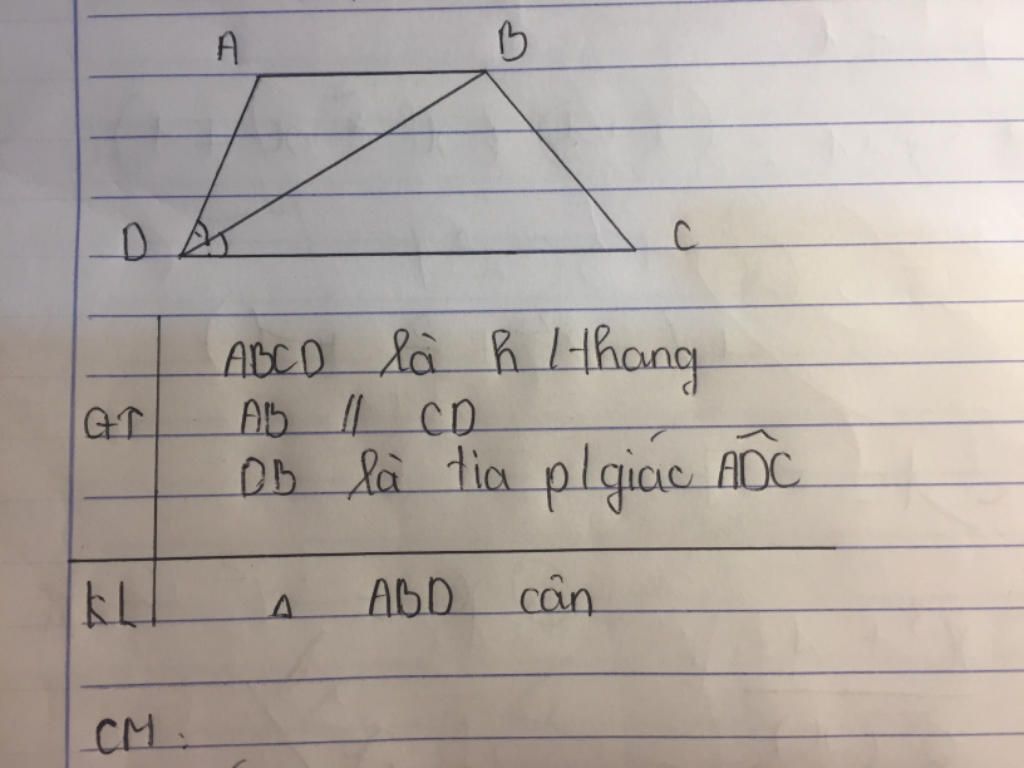 A B
D C
ABCD là h/thang
GT AB // CD
DB là tia p/giác ADC
KL Δ ABD cân
CM :